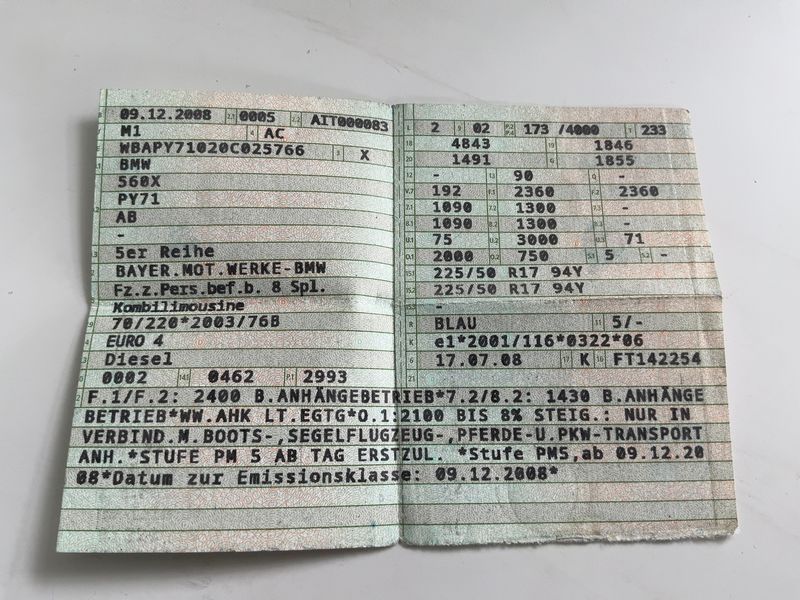 09.12.2008 0005 AIT000083
M1 AC
WBAPY71020C025766 X
BMW
560X
PY71
AB
-
5er Reihe
BAYER.MOT.WERKE-BMW
Fz.z.Pers.bef.b. 8 Spl.
Kombilimousine
70/220*2003/76B
EURO 4
Diesel
0002 0462 2993
2 02 173 /4000 233
4843 1846
1491 1855
- 90 -
192 2360 2360
1090 1300 -
1090 1300 -
75 3000 71
2000 750 5 -
225/50 R17 94Y
225/50 R17 94Y
-
BLAU 5/-
e1*2001/116*0322*06
17.07.08 K FT142254
F.1/F.2: 2400 B.ANHÄNGEBETRIEB*7.2/8.2: 1430 B.ANHÄNGE
BETRIEB*WW.AHK LT.EGTG*O.1:2100 BIS 8% STEIG.: NUR IN
VERBIND.M.BOOTS-,SEGELFLUGZEUG-,PFERDE-U.PKW-TRANSPORT
ANH.*STUFE PM 5 AB TAG ERSTZUL. *Stufe PM5,ab 09.12.20
08*Datum zur Emissionsklasse: 09.12.2008*